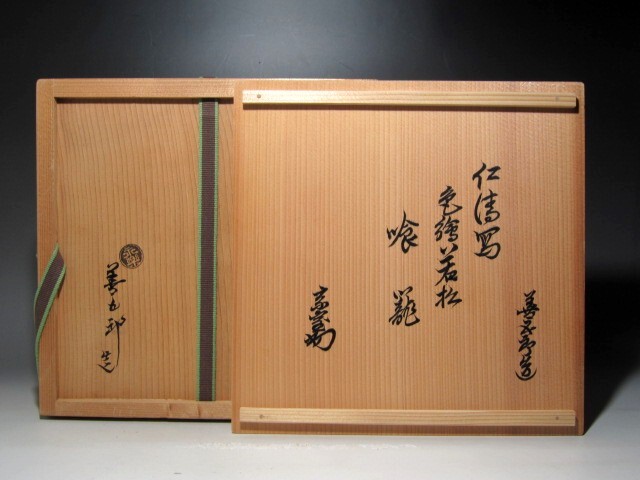 善五郎造
仁清写
色繪若松
喰籠
善五郎造